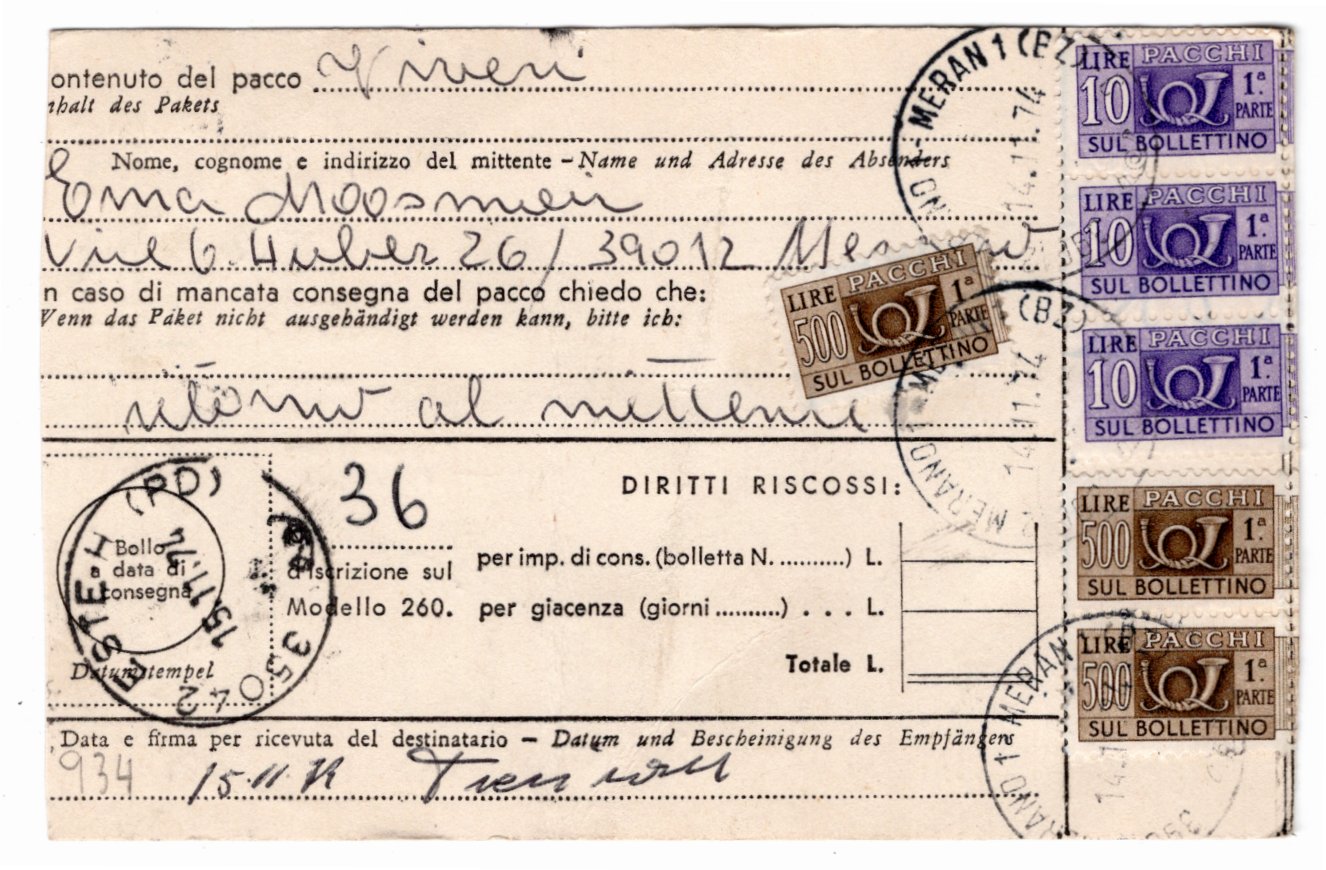 ontenuto del pacco Viveri
nhalt des Pakets
Nome, cognome e indirizzo del mittente – Name und Adresse des Absenders
Erna Moosmair
Huber 26/39012 Merano
n caso di mancata consegna del pacco chiedo che:
Wenn das Paket nicht ausgehändigt werden kann, bitte ich:
ritorno al mittente
36
DIRITTI RISCOSSI:
Bollo
a data di
consegna
Datumstempel
d'iscrizione sul
Modello 260.
per imp. di cons. (bolletta N. ..........) L.
per giacenza (giorni ..........) . . . L.
Totale L.
ESTE (PD)
15.11.74
35042
Data e firma per ricevuta del destinatario – Datum und Bescheinigung des Empfängers
934 15.11.
MERAN 1 (BZ)
14.11.74
LIRE PACCHI
10 1ª
PARTE
SUL BOLLETTINO
LIRE PACCHI
10 1ª
PARTE
SUL BOLLETTINO
LIRE PACCHI
10 1ª
PARTE
SUL BOLLETTINO
LIRE PACCHI
500 1ª
PARTE
SUL BOLLETTINO
MERANO 1 (BZ)
14.11.74
LIRE PACCHI
500 1ª
PARTE
SUL BOLLETTINO
LIRE PACCHI
500 1ª
PARTE
SUL BOLLETTINO
MERANO 1 MERAN